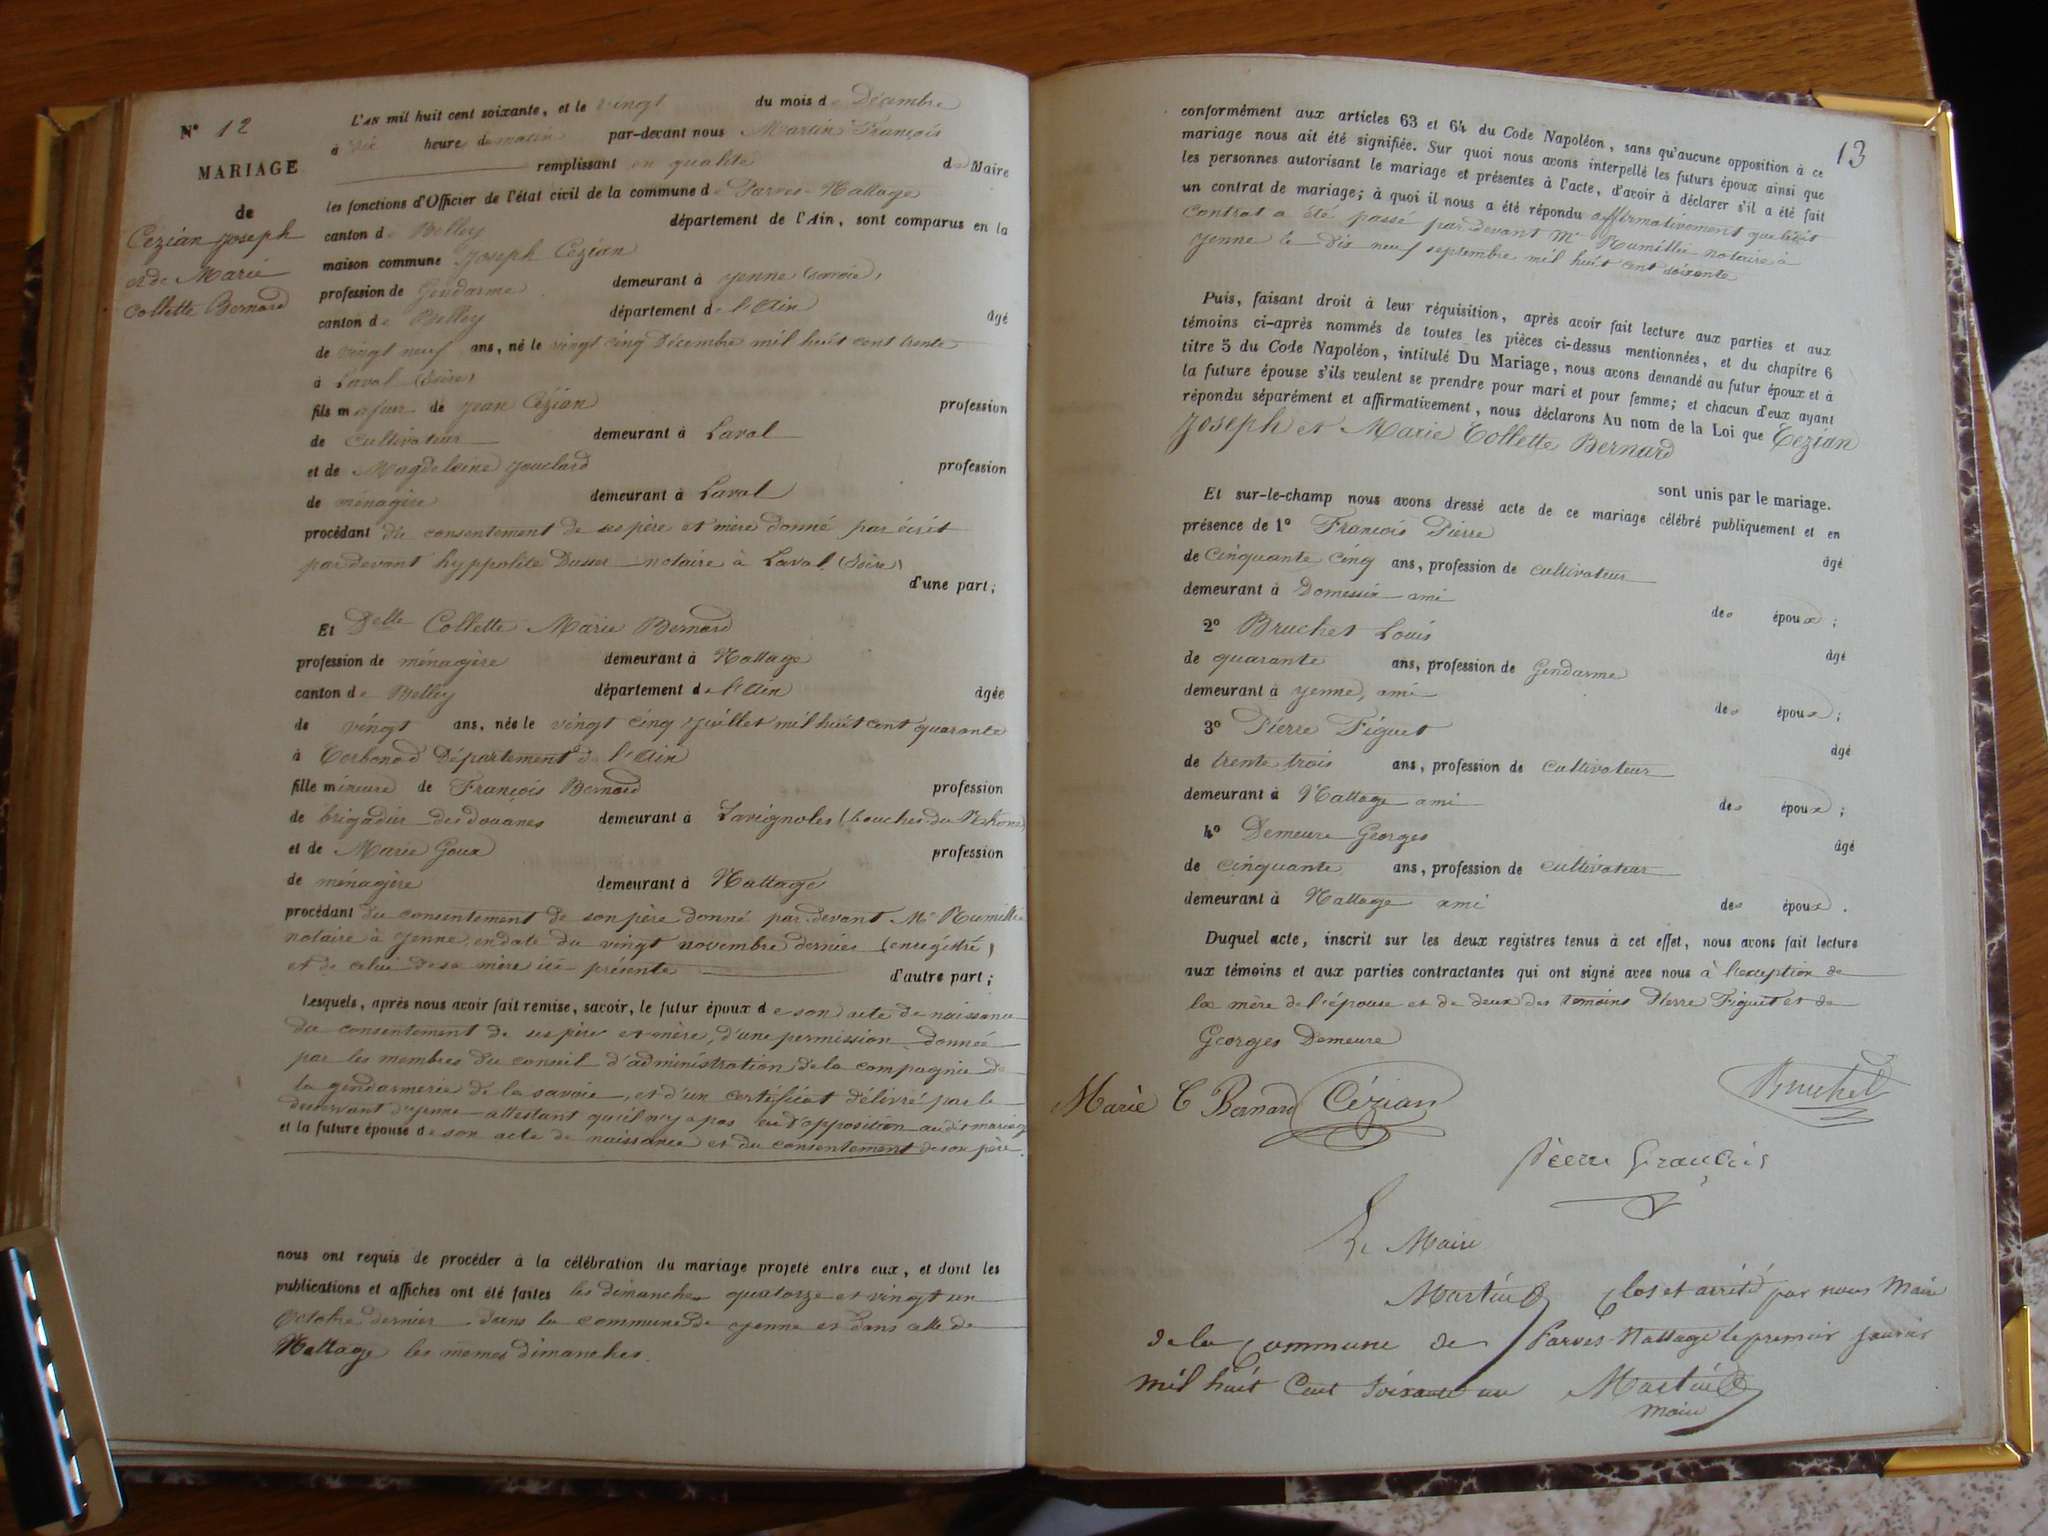 N° 12
MARIAGE
de
Cézian Joseph
et de Marie
Collette Bernard
L'AN mil huit cent soixante, et le vingt du mois de Décembre
à dix heure du matin par-devant nous Martin François
remplissant en qualité de Maire
les fonctions d'Officier de l'état civil de la commune de Parves-Nattage
canton de Belley département de l'Ain, sont comparus en la
maison commune Joseph Cézian
profession de Gendarme demeurant à yenne (savoie)
canton de Belley département de l'Ain âgé
de vingt neuf ans, né le vingt cinq Décembre mil huit cent trente
à Laval (Isère)
fils majeur de Jean Cézian profession
de cultivateur demeurant à Laval
et de Magdeleine Jouclard profession
de ménagère demeurant à Laval
procédant du consentement de ses père et mère donné par écrit
par devant hyppolite notaire à Laval (Isère)
d'une part;
Et Delle Collette Marie Bernard
profession de ménagère demeurant à Nattage
canton de Belley département de l'Ain âgée
de vingt ans, née le vingt cinq juillet mil huit cent quarante
à Corbonod Département de l'Ain
fille mineure de François Bernard profession
de brigadier des douanes demeurant à Lavignoles (bouches du Rhône)
et de Marie Goux profession
de ménagère demeurant à Nattage
procédant du consentement de son père donné par devant Me Rumillie
notaire à yenne, en date du vingt novembre dernier (enregistré)
et de celui de sa mère ici présente d'autre part;
Lesquels, après nous avoir fait remise, savoir, le futur époux de son acte de naissance
du consentement de ses père et mère, d'une permission donnée
par les membres du conseil d'administration de la compagnie de
la gendarmerie de la savoie, et d'un certificat délivré par le
desservant d'yenne attestant qu'il n'y a pas eu d'opposition au dit mariage
et la future épouse de son acte de naissance et du consentement de son père.
nous ont requis de procéder à la célébration du mariage projeté entre eux, et dont les
publications et affiches ont été faites les dimanches quatorze et vingt un
Octobre dernier dans la commune de yenne et dans celle de
Nattage les mêmes dimanches.
13
conformément aux articles 63 et 64 du Code Napoléon, sans qu'aucune opposition à ce
mariage nous ait été signifiée. Sur quoi nous avons interpellé les futurs époux ainsi que
les personnes autorisant le mariage et présentes à l'acte, d'avoir à déclarer s'il a été fait
un contrat de mariage; à quoi il nous a été répondu affirmativement que ledit
contrat a été passé par devant Me Rumillie notaire à
yenne le dix neuf septembre mil huit cent soixante
Puis, faisant droit à leur réquisition, après avoir fait lecture aux parties et aux
témoins ci-après nommés de toutes les pièces ci-dessus mentionnées, et du chapitre 6
titre 5 du Code Napoléon, intitulé Du Mariage, nous avons demandé au futur époux et à
la future épouse s'ils veulent se prendre pour mari et pour femme; et chacun d'eux ayant
répondu séparément et affirmativement, nous déclarons Au nom de la Loi que Cezian
Joseph et Marie Collette Bernard
sont unis par le mariage.
Et sur-le-champ nous avons dressé acte de ce mariage célébré publiquement et en
présence de 1° François Pierre âgé
de Cinquante cinq ans, profession de cultivateur
demeurant à Domessin ami des époux;
2° Bruchet Louis âgé
de quarante ans, profession de Gendarme
demeurant à yenne, ami des époux;
3° Pierre Figuet âgé
de trente trois ans, profession de cultivateur
demeurant à Nattage ami des époux;
4° Demeure Georges âgé
de cinquante ans, profession de cultivateur
demeurant à Nattage ami des époux.
Duquel acte, inscrit sur les deux registres tenus à cet effet, nous avons fait lecture
aux témoins et aux parties contractantes qui ont signé avec nous à l'exception de
la mère de l'épouse et de deux des temoins Pierre Figuet et de
Georges Demeure
Marie C Bernard Cézian Bruchet
Pierre François
Le Maire
Martin Clos et arrêté par nous Maire
de la Commune de Parves-Nattage le premier Janvier
mil huit Cent soixante un Martin
maire